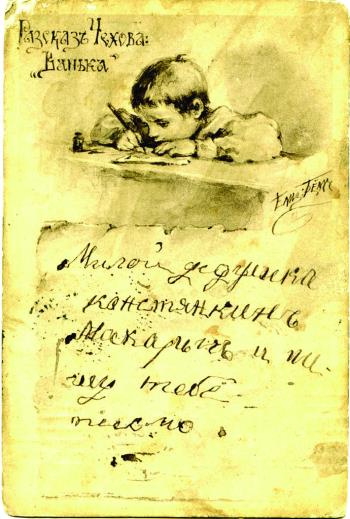 Разсказъ Чехова:
„Ванька“
Елиз. Бёмъ
Милой дедушка
канстянкинъ
Макарычъ и пи-
шу тебе
писмо.